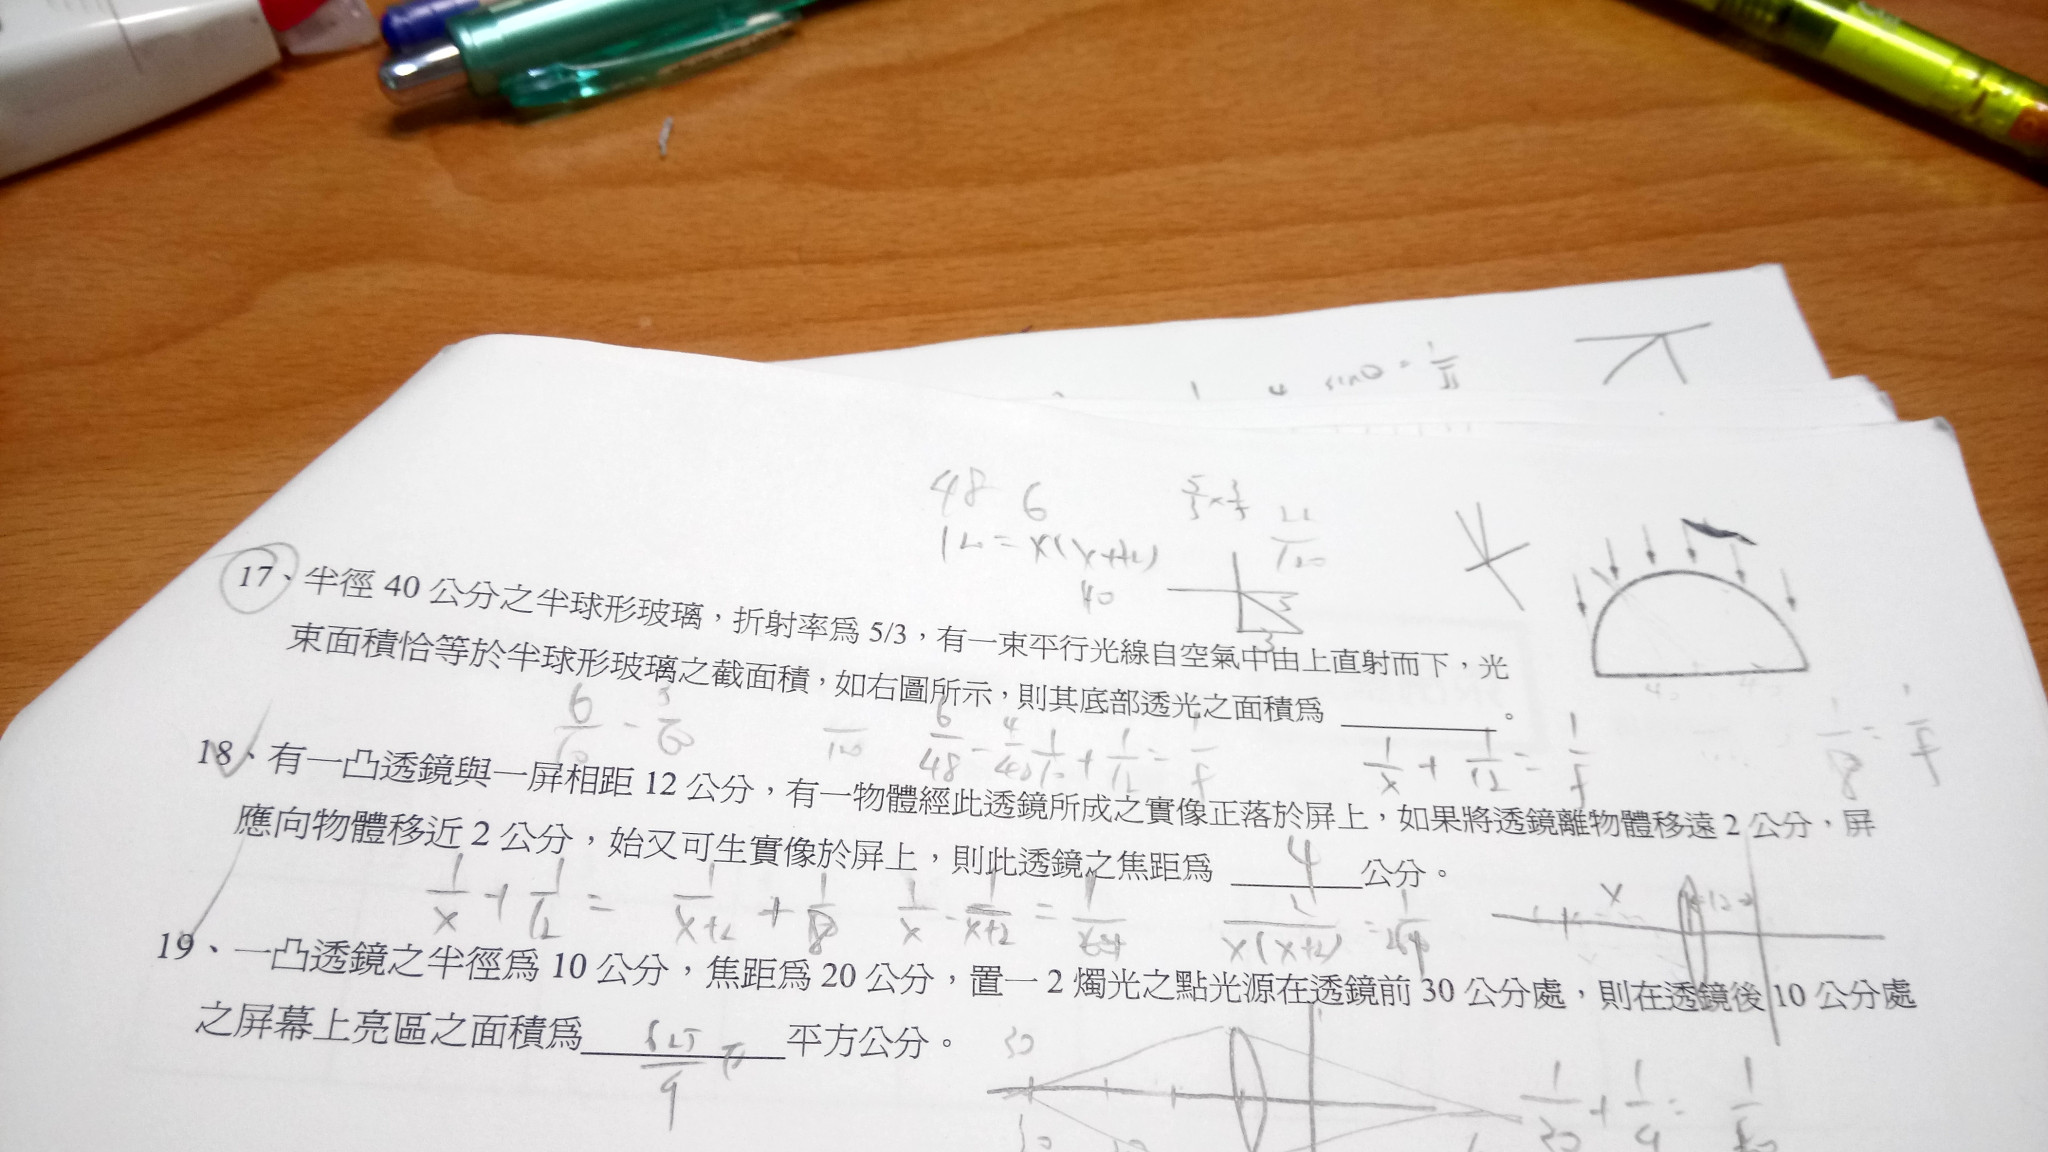 sinθ =
48 6
12=x(x+2)
40
17、半徑 40 公分之半球形玻璃，折射率為 5/3，有一束平行光線自空氣中由上直射而下，光
束面積恰等於半球形玻璃之截面積，如右圖所示，則其底部透光之面積為 ________。
1/x + 1/12 = 1/f
18、有一凸透鏡與一屏相距 12 公分，有一物體經此透鏡所成之實像正落於屏上，如果將透鏡離物體移遠 2 公分，屏
應向物體移近 2 公分，始又可生實像於屏上，則此透鏡之焦距為 4 公分。
1/x + 1/12 = 1/x+2 + 1/8
x
19、一凸透鏡之半徑為 10 公分，焦距為 20 公分，置一 2 燭光之點光源在透鏡前 30 公分處，則在透鏡後 10 公分處
之屏幕上亮區之面積為 625/9 π 平方公分。
30